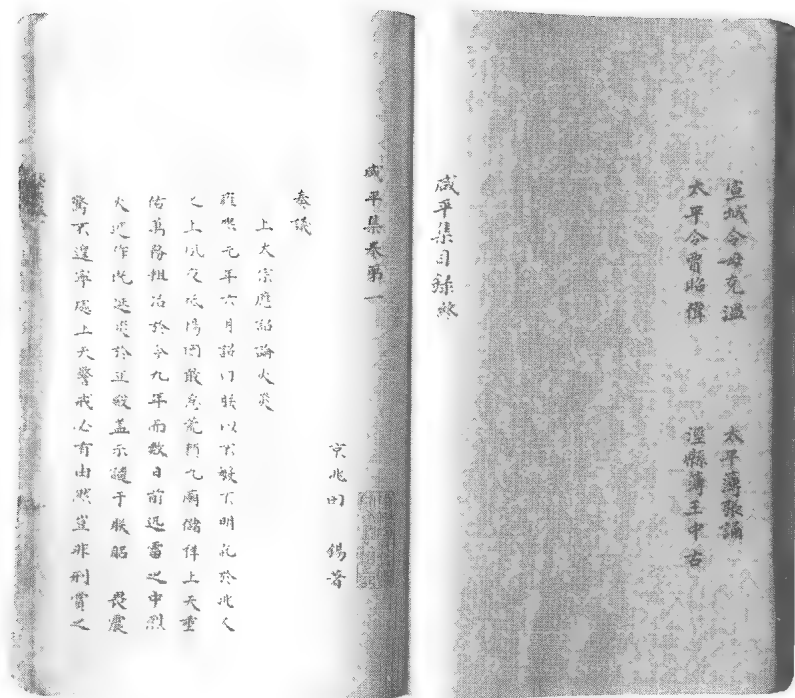 宣城令毋克溫　太平簿張誦
太平令曾昭偉　涇縣簿王中古
咸平集目錄終
咸平集卷第一
京兆田　錫著
奏議
上太宗應詔論火災
雍熙元年六月詔曰朕以不敏不明託於兆人
之上夙夜祗惕罔敢怠荒賴九廟儲祥上天垂
佑萬務粗治於今九年而數日前迅雷之中烈
火遽作既延災於正殿蓋示譴于朕躬　畏震
驚不遑寧處上天警戒必有由然豈非刑賞之